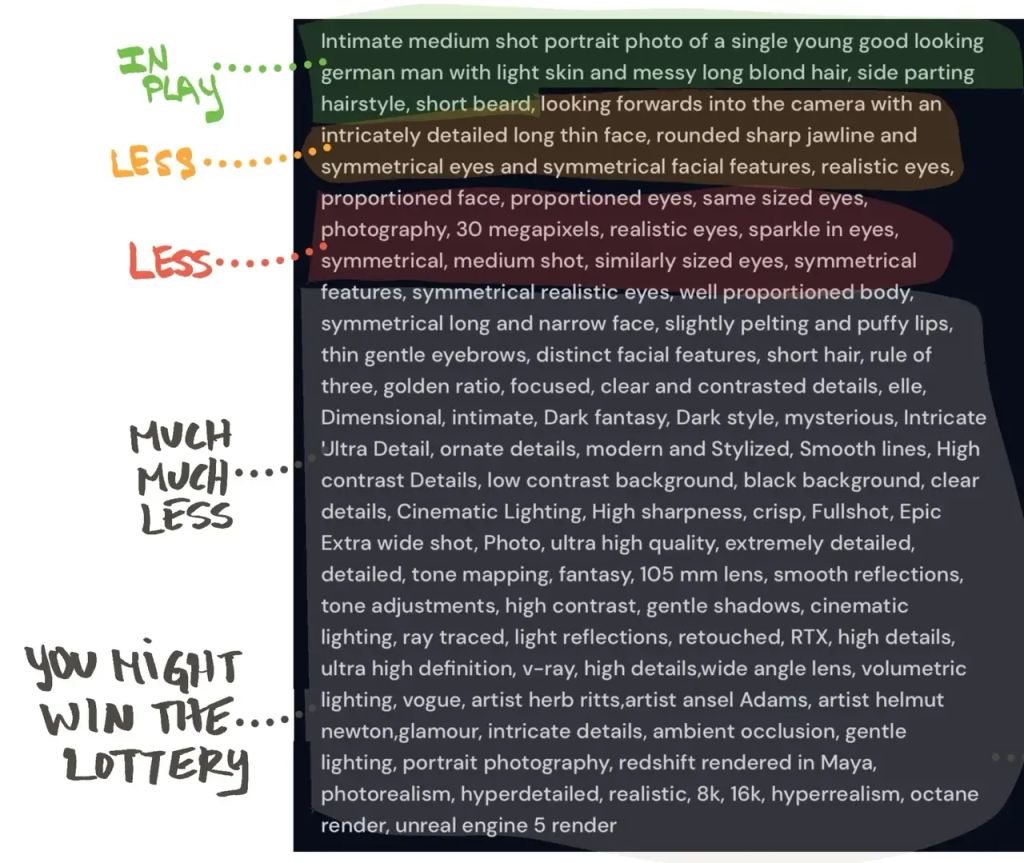 IN
PLAY
LESS
LESS
MUCH
MUCH
LESS
YOU MIGHT
WIN THE
LOTTERY
Intimate medium shot portrait photo of a single young good looking
german man with light skin and messy long blond hair, side parting
hairstyle, short beard, looking forwards into the camera with an
intricately detailed long thin face, rounded sharp jawline and
symmetrical eyes and symmetrical facial features, realistic eyes,
proportioned face, proportioned eyes, same sized eyes,
photography, 30 megapixels, realistic eyes, sparkle in eyes,
symmetrical, medium shot, similarly sized eyes, symmetrical
features, symmetrical realistic eyes, well proportioned body,
symmetrical long and narrow face, slightly pelting and puffy lips,
thin gentle eyebrows, distinct facial features, short hair, rule of
three, golden ratio, focused, clear and contrasted details, elle,
Dimensional, intimate, Dark fantasy, Dark style, mysterious, Intricate
Ultra Detail, ornate details, modern and Stylized, Smooth lines, High
contrast Details, low contrast background, black background, clear
details, Cinematic Lighting, High sharpness, crisp, Fullshot, Epic
Extra wide shot, Photo, ultra high quality, extremely detailed,
detailed, tone mapping, fantasy, 105 mm lens, smooth reflections,
tone adjustments, high contrast, gentle shadows, cinematic
lighting, ray traced, light reflections, retouched, RTX, high details,
ultra high definition, v-ray, high details,wide angle lens, volumetric
lighting, vogue, artist herb ritts,artist ansel Adams, artist helmut
newton,glamour, intricate details, ambient occlusion, gentle
lighting, portrait photography, redshift rendered in Maya,
photorealism, hyperdetailed, realistic, 8k, 16k, hyperrealism, octane
render, unreal engine 5 render